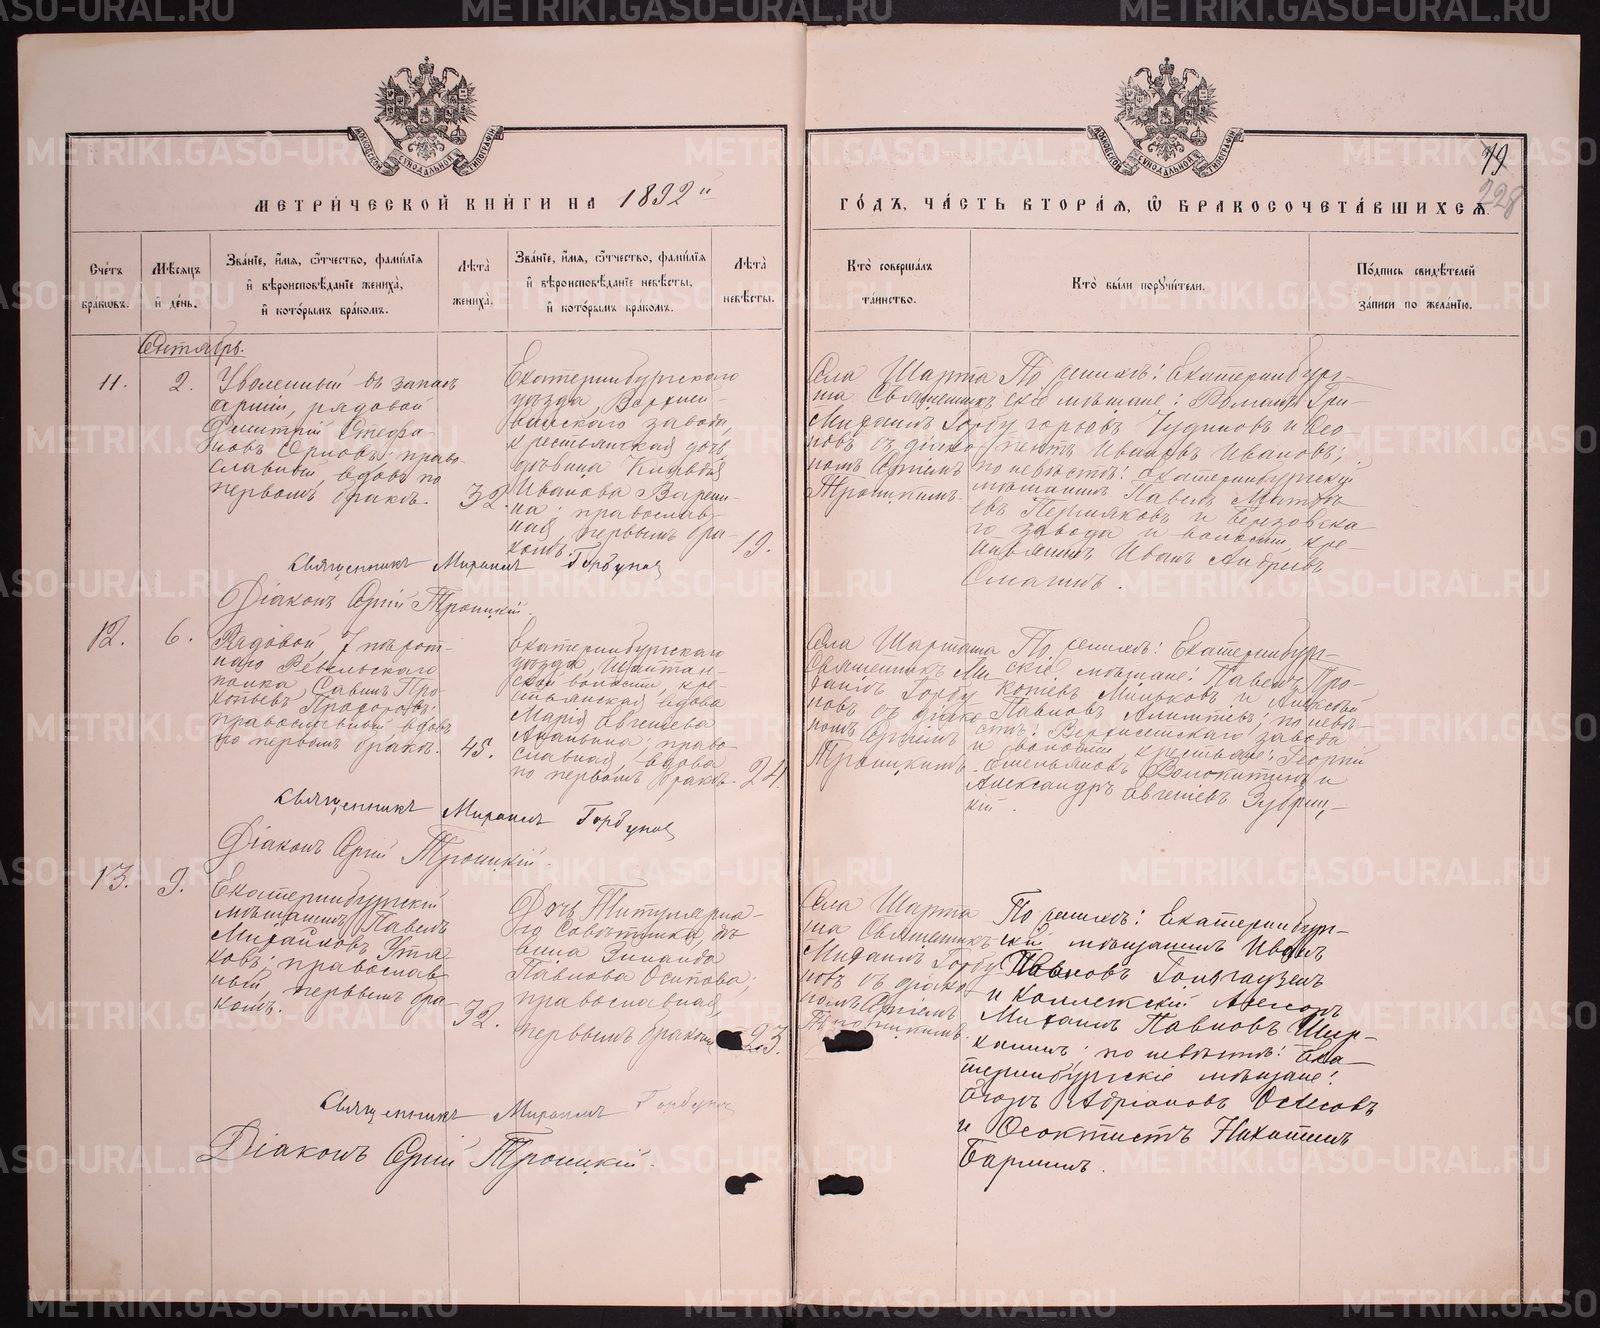 МЕТРИ́ЧЕСКОЙ КНИ́ГИ НА 1892 й
ГО́ДЪ, ЧА́СТЬ ВТОРА́Я, Ѡ БРАКОСОЧЕТА́ВШИХСЯ.
79
228
Сче́тъ бра́кѡвъ.
Мѣ́сяцъ и҆ де́нь.
Зва́нїе, и҆́мя, ѻ҆́тчество, фами́лїя и҆ вѣроисповѣ́данїе жениха̀, и҆ кото́рымъ бра́комъ.
Лѣ́та жениха̀.
Зва́нїе, и҆́мя, ѻ҆́тчество, фами́лїя и҆ вѣроисповѣ́данїе невѣ́сты, и҆ кото́рымъ бра́комъ.
Лѣ́та невѣ́сты.
Кто̀ соверша́лъ та́инство.
Кто̀ бы́ли пору́чители.
По́дпись свидѣ́телей за́писи по жела́нїю.
Сентябрь.
11.
2.
Уволенный въ запасъ
арміи, рядовой
Димитрій Стефа-
новъ Орловъ; право-
славный, вдовъ по
первомъ бракѣ.
32.
Екатеринбургскаго
уѣзда, Верхисе-
тскаго завода,
крестьянская дочь,
дѣвица Клавдія
Иванова
православ-
ная, первымъ бра-
комъ.
19.
Села Шарта
ша Священникъ
Михаилъ Горбу
новъ съ діако
номъ Сергіемъ
Троицкимъ.
По женихѣ: Екатеринбург-
скіе мѣщане: Романъ Гри-
горьевъ Чудиновъ и Ле-
онтъ Ивановъ Ивановъ;
по невѣстѣ: Екатеринбургскій
мѣщанинъ Павелъ Матвѣ-
евъ Пермяковъ и Березовска-
го завода и волости, кре-
стьянинъ Иванъ Андреевъ
Смагинъ.
Священникъ Михаилъ Горбуновъ
Діаконъ Сергій Троицкій.
12.
6.
Рядовой, 7 пѣхот-
наго Ревельскаго
полка, Савинъ Про-
копьевъ Прохоровъ;
православный, вдовъ
по первомъ бракѣ.
45.
Екатеринбургскаго
уѣзда, Шайтан-
ской волости, кре-
стьянская вдова
Марія Евгеніева
право-
славная, вдова
по первомъ бракѣ.
24.
Села Шарташа
Священникъ Ми
хаилъ Горбу
новъ съ діако
номъ Сергіемъ
Троицкимъ.
По женихѣ: Екатеринбург-
скіе мѣщане: Павелъ Про-
копьевъ Мильковъ и Алексѣй
Павловъ по невѣ-
стѣ: Верхисетскаго завода
и волости, крестьяне: Георгій
Емельяновъ Волокитинъ и
Александръ Евгеніевъ Зубриц-
кій.
Священникъ Михаилъ Горбуновъ
Діаконъ Сергій Троицкій.
13.
9.
Екатеринбургскій
мѣщанинъ Павелъ
Михайловъ Ута-
ковъ; православ-
ный, первымъ бра-
комъ.
32.
Дочь Титулярна-
го Совѣтника, дѣ-
вица Зинаида
Павлова Осипова;
православная,
первымъ бракомъ
23.
Села Шарта
ша Священникъ
Михаилъ Горбу
новъ съ діако
номъ Сергіемъ
Троицкимъ.
По женихѣ: Екатеринбург-
скій мѣщанинъ Иванъ
Павловъ Гольгаузенъ
и Коллежскій Асессоръ
Михаилъ Павловъ
по невѣстѣ: Ека-
теринбургскіе мѣщане:
Егоръ Адріановъ
и Ѳеоктистъ Никитинъ
Барминъ.
Священникъ Михаилъ Горбуновъ
Діаконъ Сергій Троицкій.
METRIKI.GASO-URAL.RU